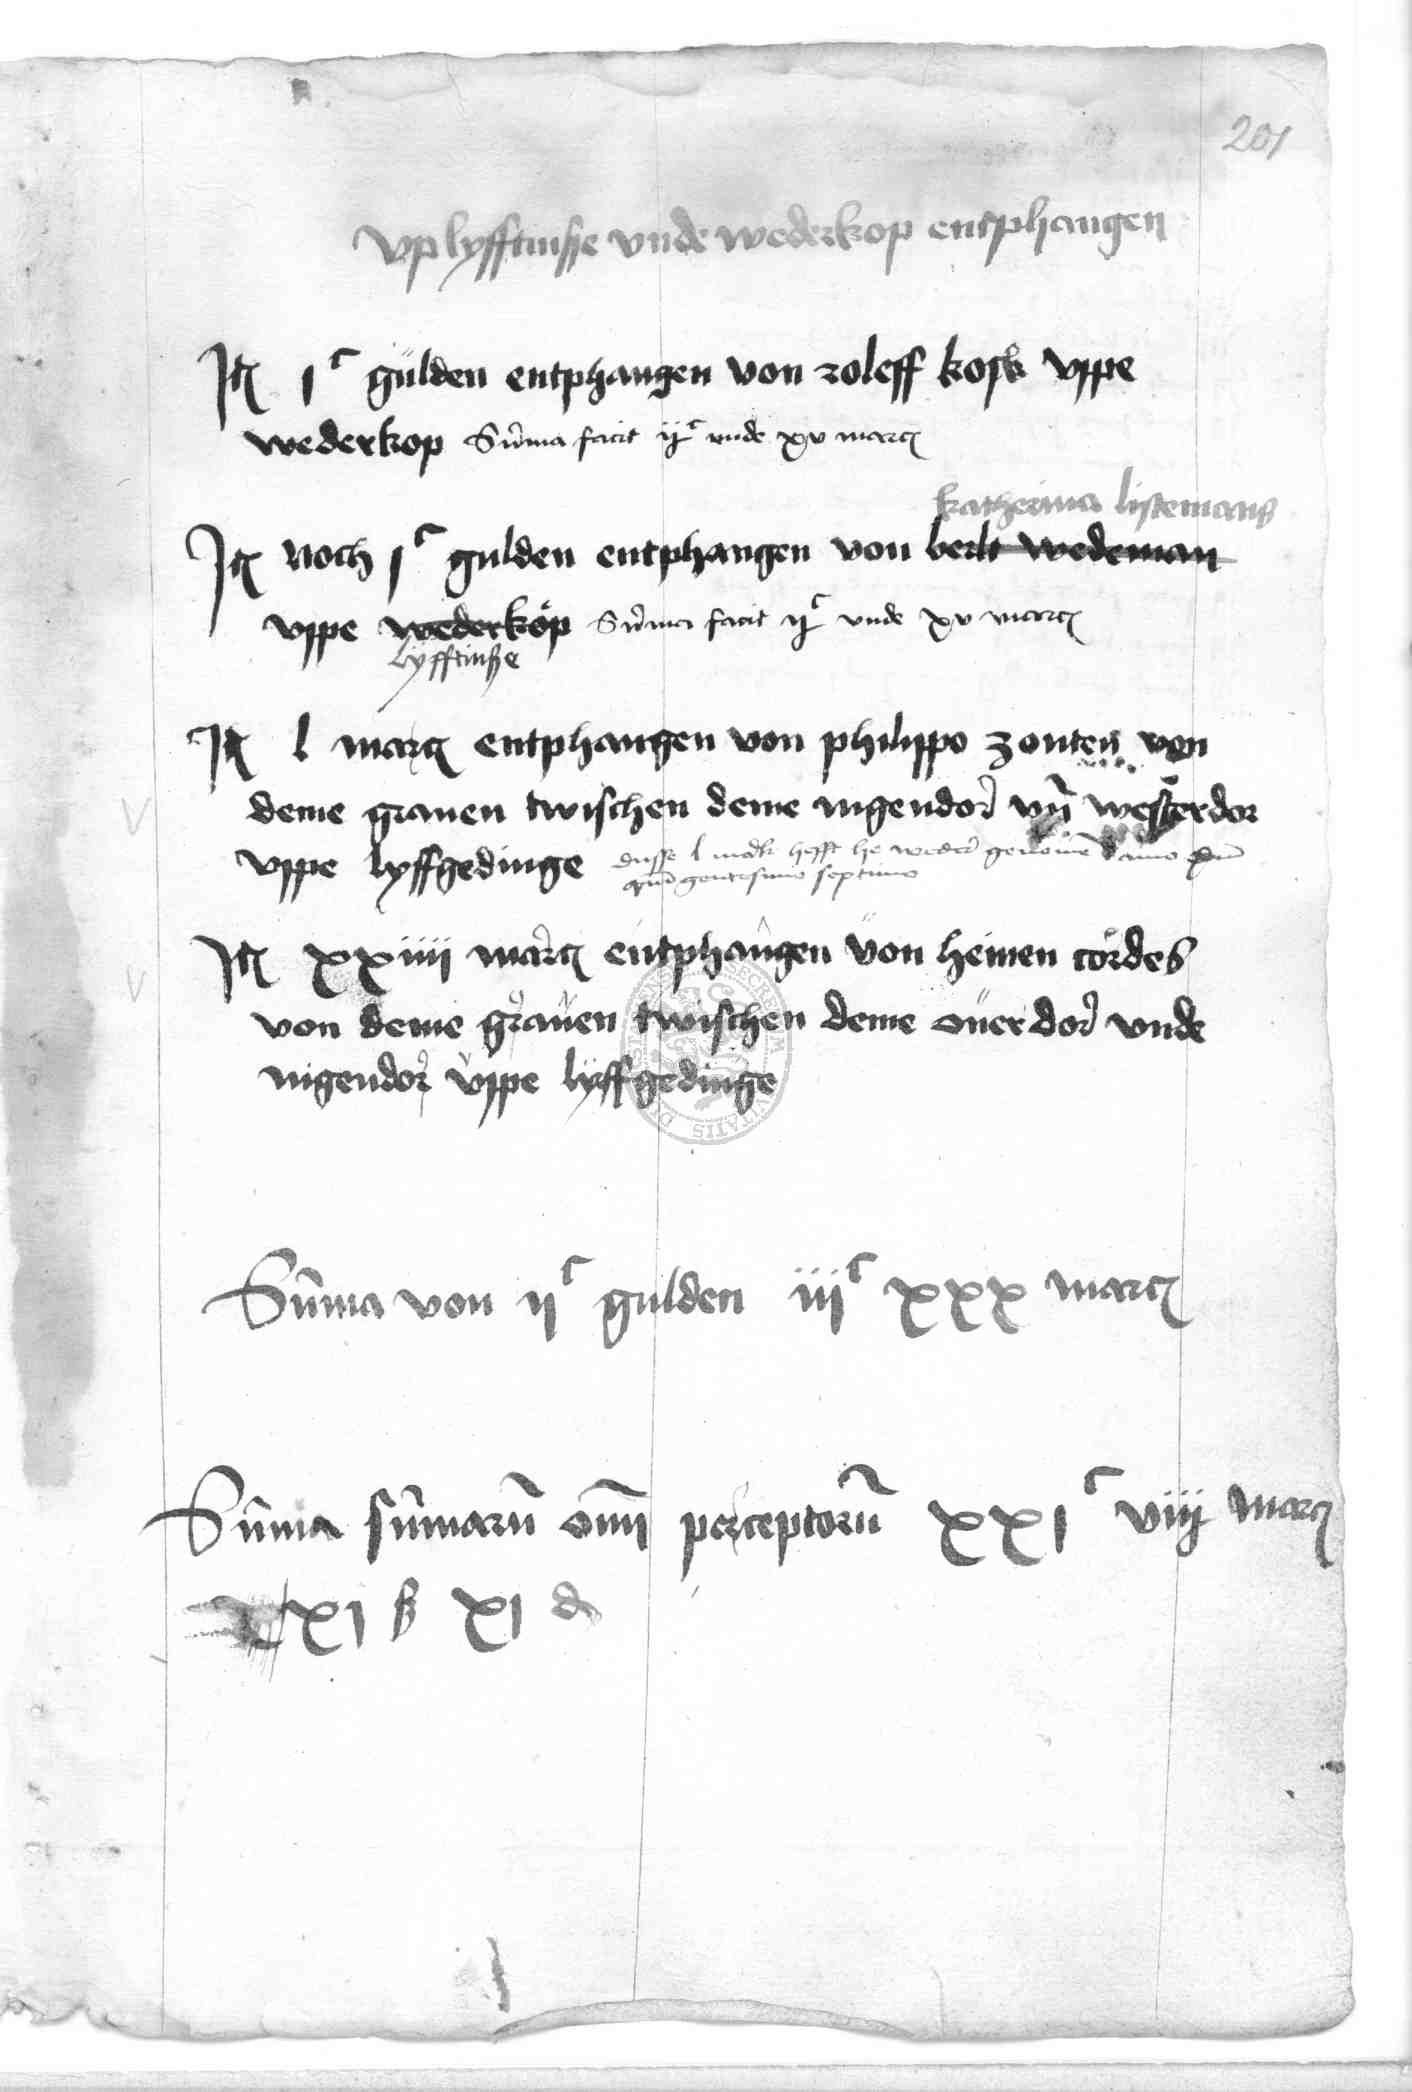 201
vp lyfftinsse vnde wederkop entphangen
Itz Iᶜ gulden entphangen von roleff kock vppe
wederkop Sūma facit iiᶜ vnde xv marcz
katherina listemans
Itz noch Iᶜ gulden entphangen von berlt wedeman
vppe wederkop Sūma facit iiᶜ vnde xv marcz
lyfftinsse
Itz l marcz entphangen von philippo zonten von
deme grauen twischen deme nigendor vn̄ westerdor
vppe lyffgedinge dusse l mark hefft he weder genomē anno dn̄i
quīgentesimo septimo
Itz xxiiii marcz entphangen von heinen cordes
von deme grauen twischen deme ouerdor vnde
nigendor vppe lyffgedinge
Sūma von iiᶜ gulden iiiᶜ xxx marcz
Sūma sūmarū om̄i perceptorū XXIᶜ viij marcz
XI ß XI d
SECRETUM CIVITATIS